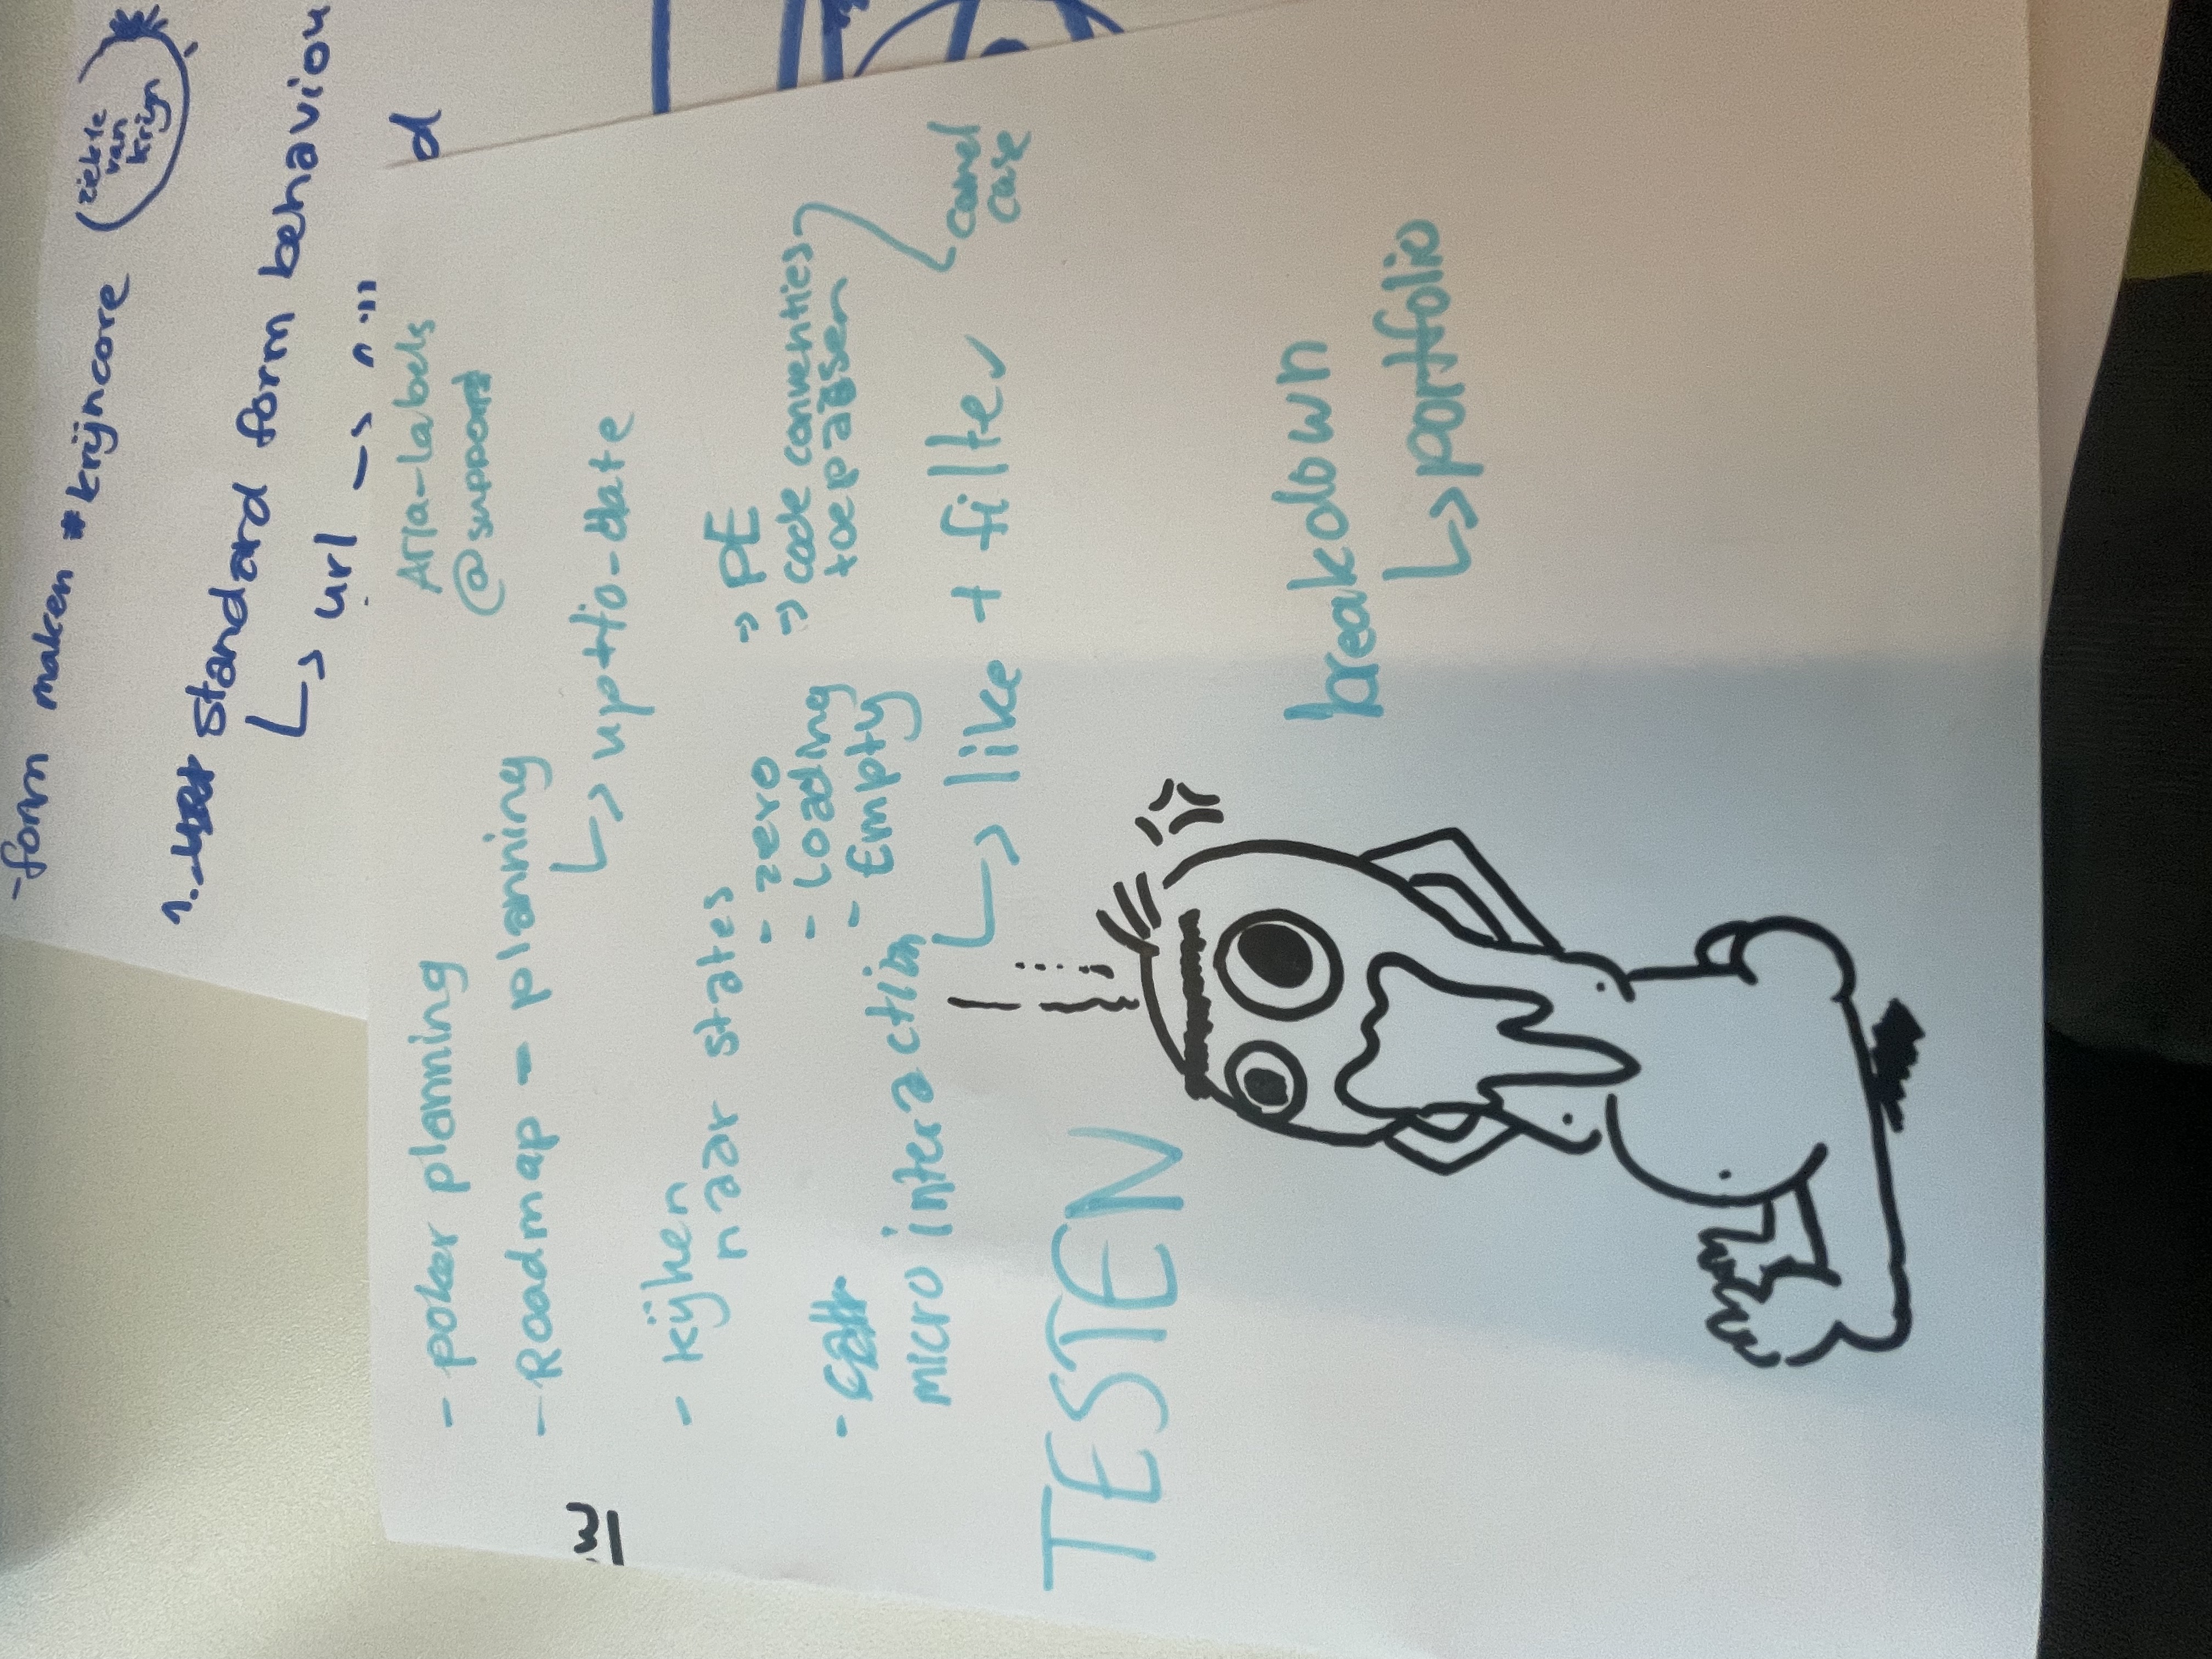 -form maken #krijncore (ziekte van krijn)
1. standard form behaviou
↳ url → " "" 
d
Aria-labels
@support
- poker planning
- Roadmap - planning
↳ up-to-date
- kijken
naar states
- zero
- Loading
- Empty
⇒ PE
⇒ code conventies
toepassen
camel
case
-
micro interaction
↳ like + filter
TESTEN
breakdown
↳ portfolio